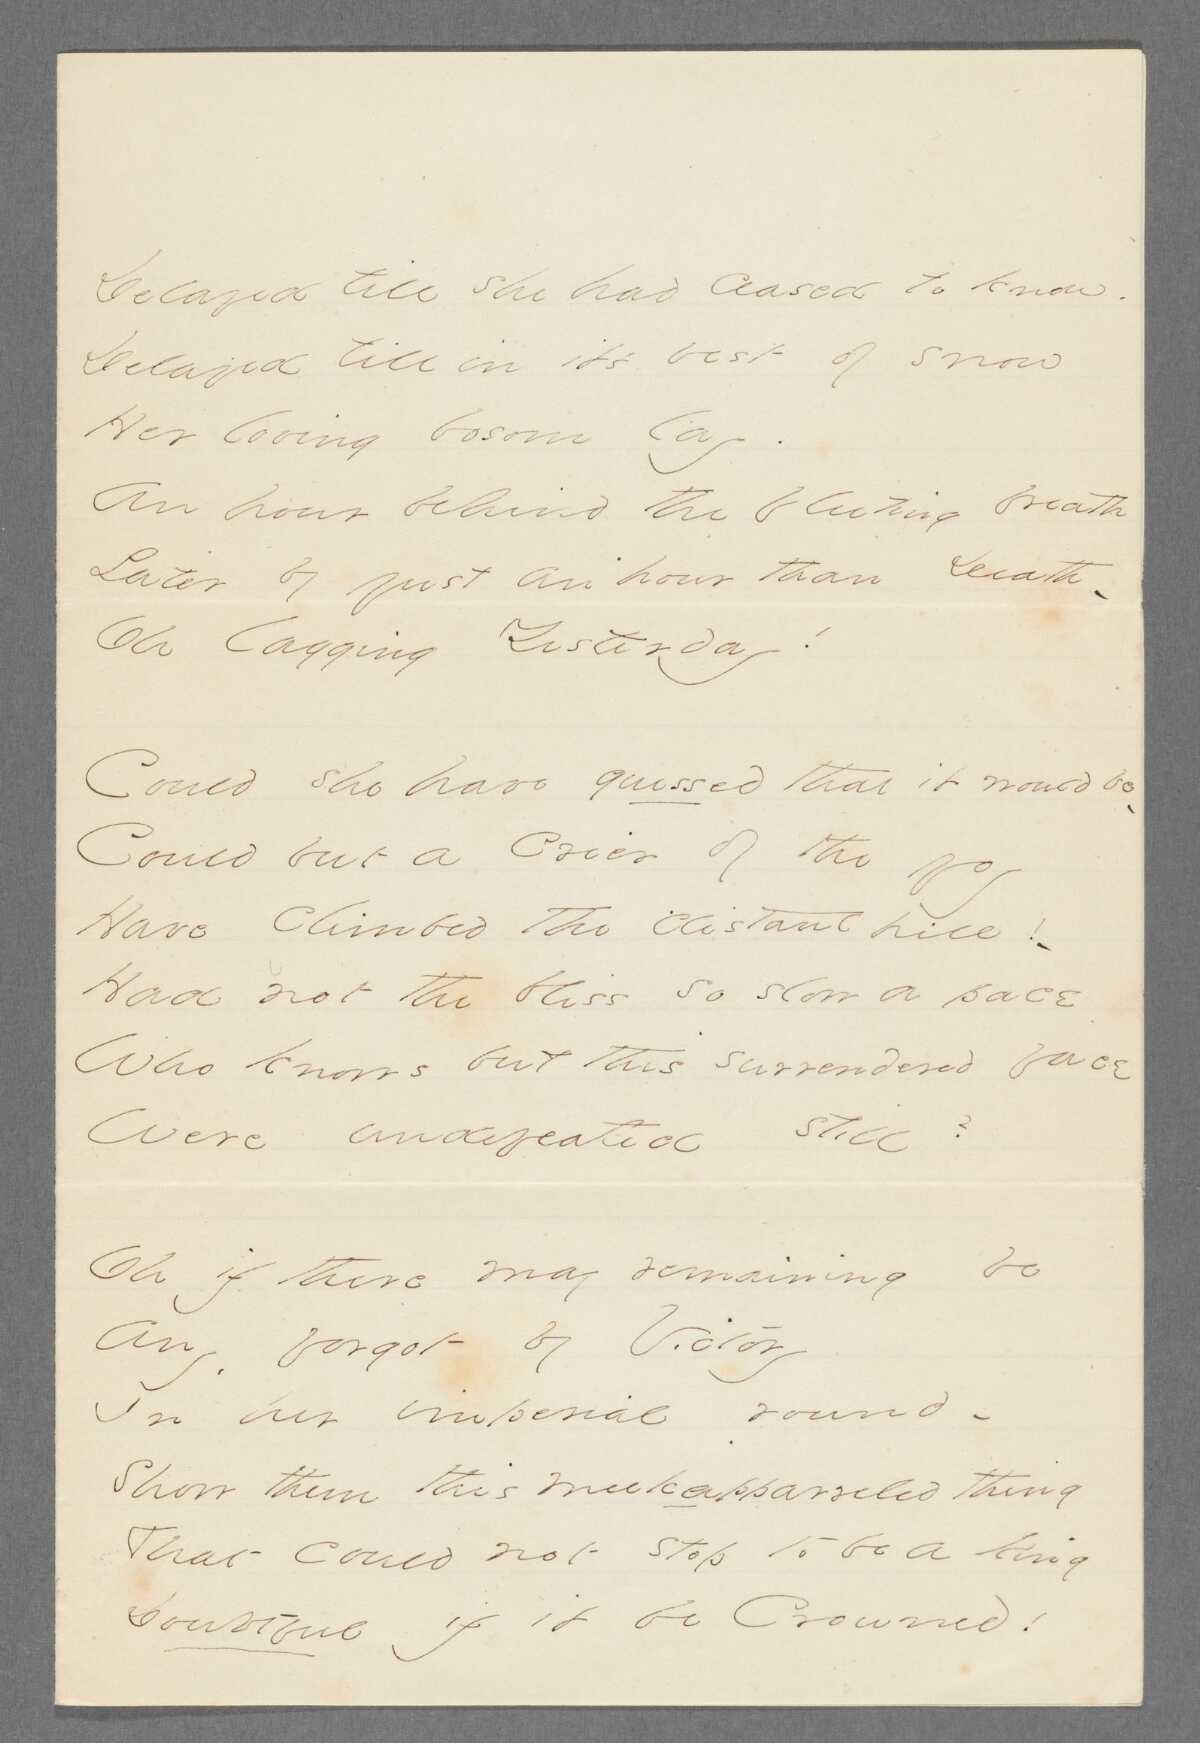 Delayed till she had ceased to know.
Delayed till in it's vest of snow
Her loving bosom lay.
An hour behind the fleeting breath
Later by just an hour than Death -
Oh lagging Yesterday!
Could she have guessed that it would be -
Could but a Crier of the joy
Have climbed the distant hill! -
Had not the bliss so slow a pace
Who knows but this surrendered face
Were undefeated still?
Oh if there may remaining be
Any forgot by Victory
In her imperial round -
Show them this meek apparreled thing
That could not stop to be a king
Doubtful if it be Crowned!